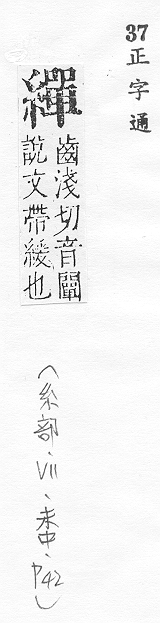 37正字通
繟
齒淺切音闡
說文帶緩也
(糸部·VII·未中·P42)